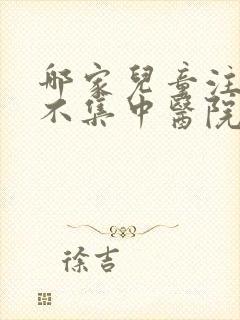 哪家兒童注
不集中醫院
徐吉